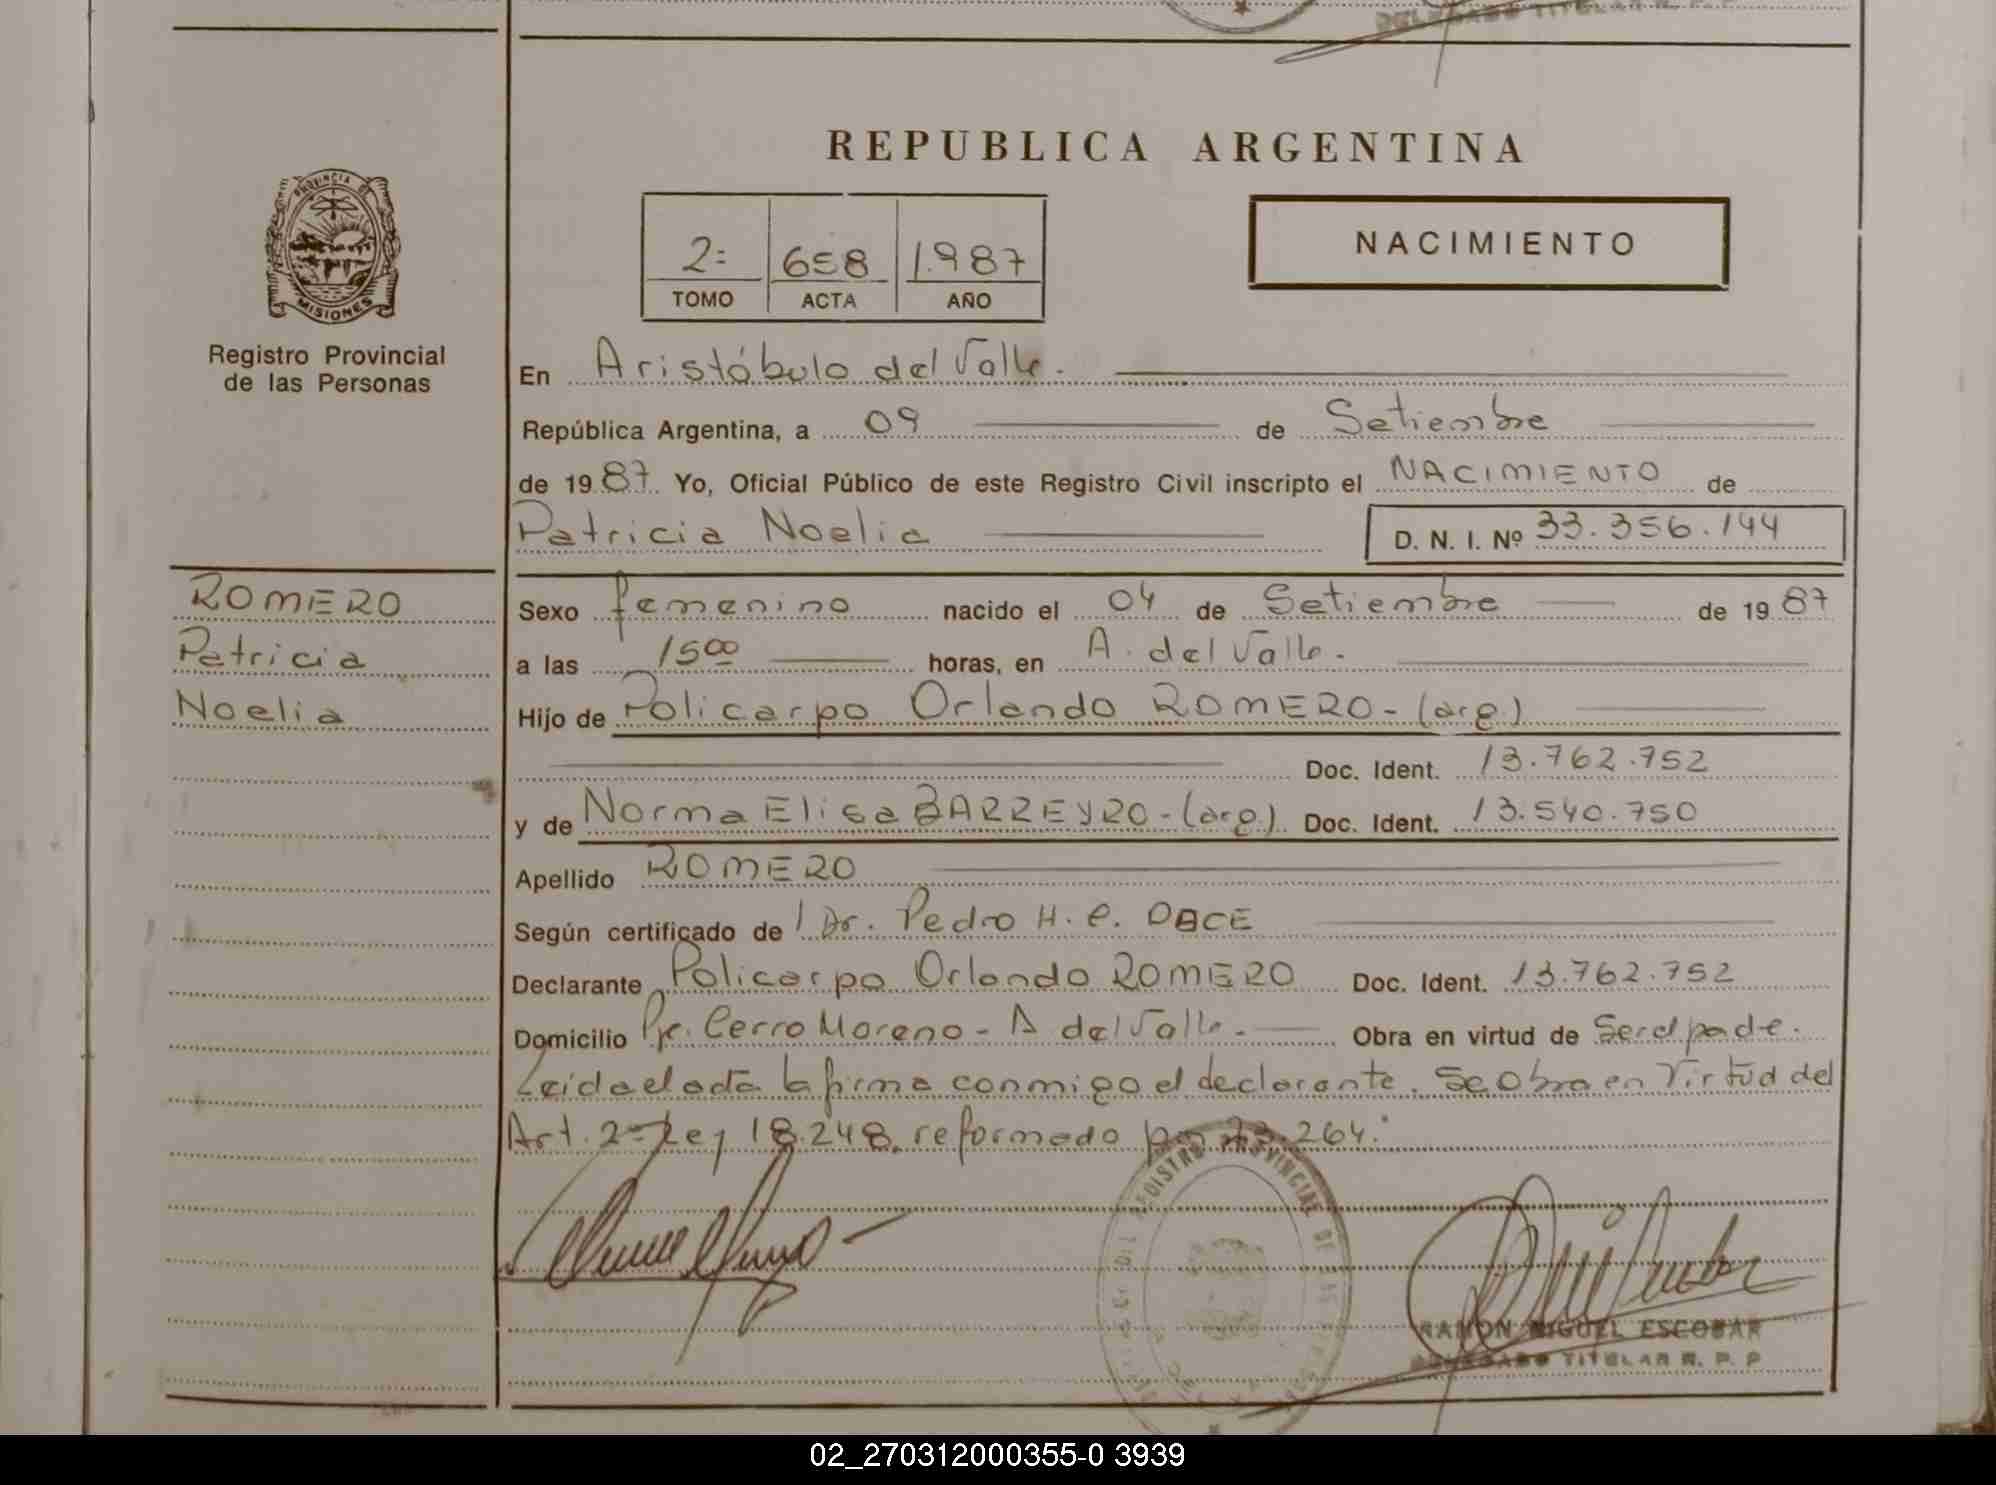 DELEGADO TITULAR R. P. P
REPUBLICA ARGENTINA
PROVINCIA DE
MISIONES
Registro Provincial
de las Personas
2= 658 1.987
TOMO ACTA AÑO
NACIMIENTO
En Aristóbulo del Valle.
República Argentina, a 09 de Setiembre
de 1987. Yo, Oficial Público de este Registro Civil inscripto el NACIMIENTO de
Patricia Noelia D. N. I. Nº 33.356.144
ROMERO
Patricia
Noelia
Sexo femenino nacido el 04 de Setiembre de 1987
a las 15ºº horas, en A. del Valle.
Hijo de Policarpo Orlando ROMERO - (arg.)
Doc. Ident. 13.762.752
y de Norma Elisa BARREYRO - (arg.) Doc. Ident. 13.540.750
Apellido ROMERO
Según certificado de l Dr. Pedro H. C. DACE
Declarante Policarpo Orlando ROMERO Doc. Ident. 13.762.752
Domicilio Pje. Cerro Moreno - A del Valle. Obra en virtud de Ser el padre.
Leida el acta la firma conmigo el declarante. Se Obra en Virtud del
Art. 2= Ley 18.248. reformado por 23.264.
REGISTRO PROVINCIAL DE LAS
RAMON MIGUEL ESCOBAR
DELEGADO TITULAR R. P. P
02_270312000355-0 3939